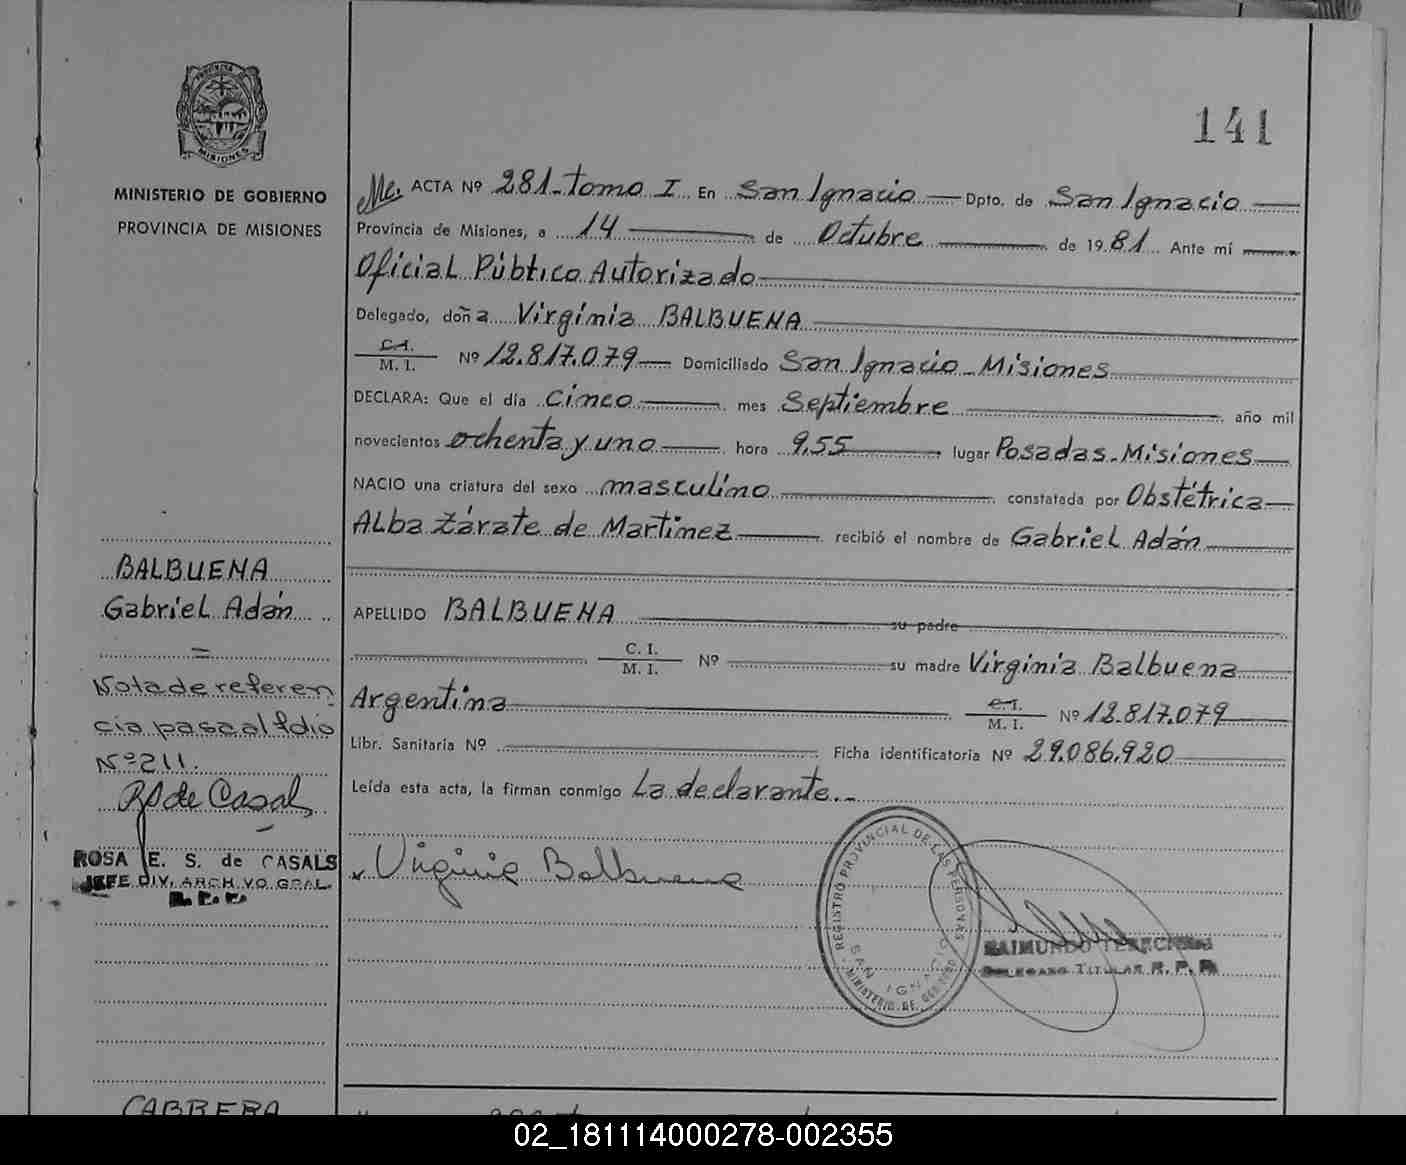 141
PROVINCIA DE
MISIONES
MINISTERIO DE GOBIERNO
PROVINCIA DE MISIONES
ACTA Nº 281-tomo I En San Ignacio Dpto. de San Ignacio
Provincia de Misiones, a 14 de Octubre de 1981 Ante mí
Oficial Público Autorizado
Delegado, doña Virginia BALBUENA
C.I.
M. I. Nº 12.817.079 Domiciliado San Ignacio - Misiones
DECLARA: Que el día cinco mes Septiembre año mil
novecientos ochenta y uno hora 9,55 lugar Posadas-Misiones
NACIO una criatura del sexo masculino constatada por Obstétrica
Alba Zárate de Martinez recibió el nombre de Gabriel Adán
APELLIDO BALBUENA su padre
C. I.
M. I. Nº su madre Virginia Balbuena
Argentina C.I.
M. I. Nº 12.817.079
Libr. Sanitaria Nº Ficha identificatoria Nº 29.086.920
Leída esta acta, la firman conmigo La declarante.-
Virginia Balbuena
REGISTRO PROVINCIAL DE LAS PERSONAS
SAN IGNACIO
MINISTERIO DE GOBIERNO
RAIMUNDO
DELEGADO TITULAR R. P. P.
BALBUENA
Gabriel Adán
=
Nota de referen
cia pasa al fdio
Nº 211.
de Casals
ROSA E. S. de CASALS
JEFE DIV. ARCHIVO GRAL.
R.P.P.
CABRERA
02_181114000278-002355